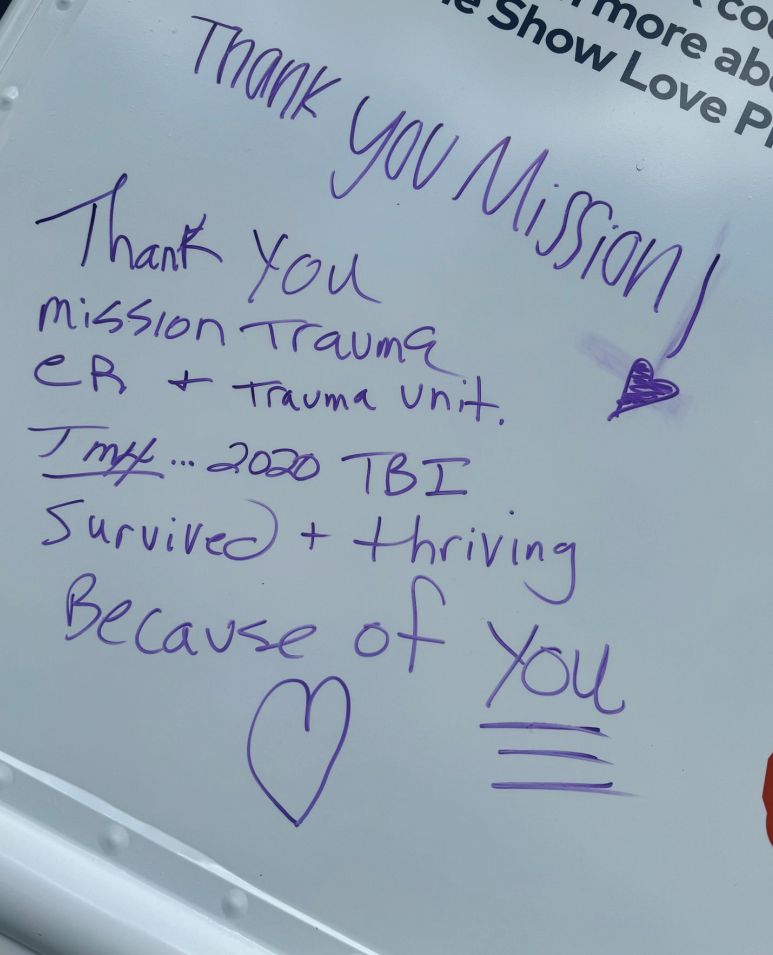 more abo
Show Love P
Thank you Mission!
Thank You
mission Trauma
ER + Trauma unit.
... 2020 TBI
Survived + thriving
Because of
You